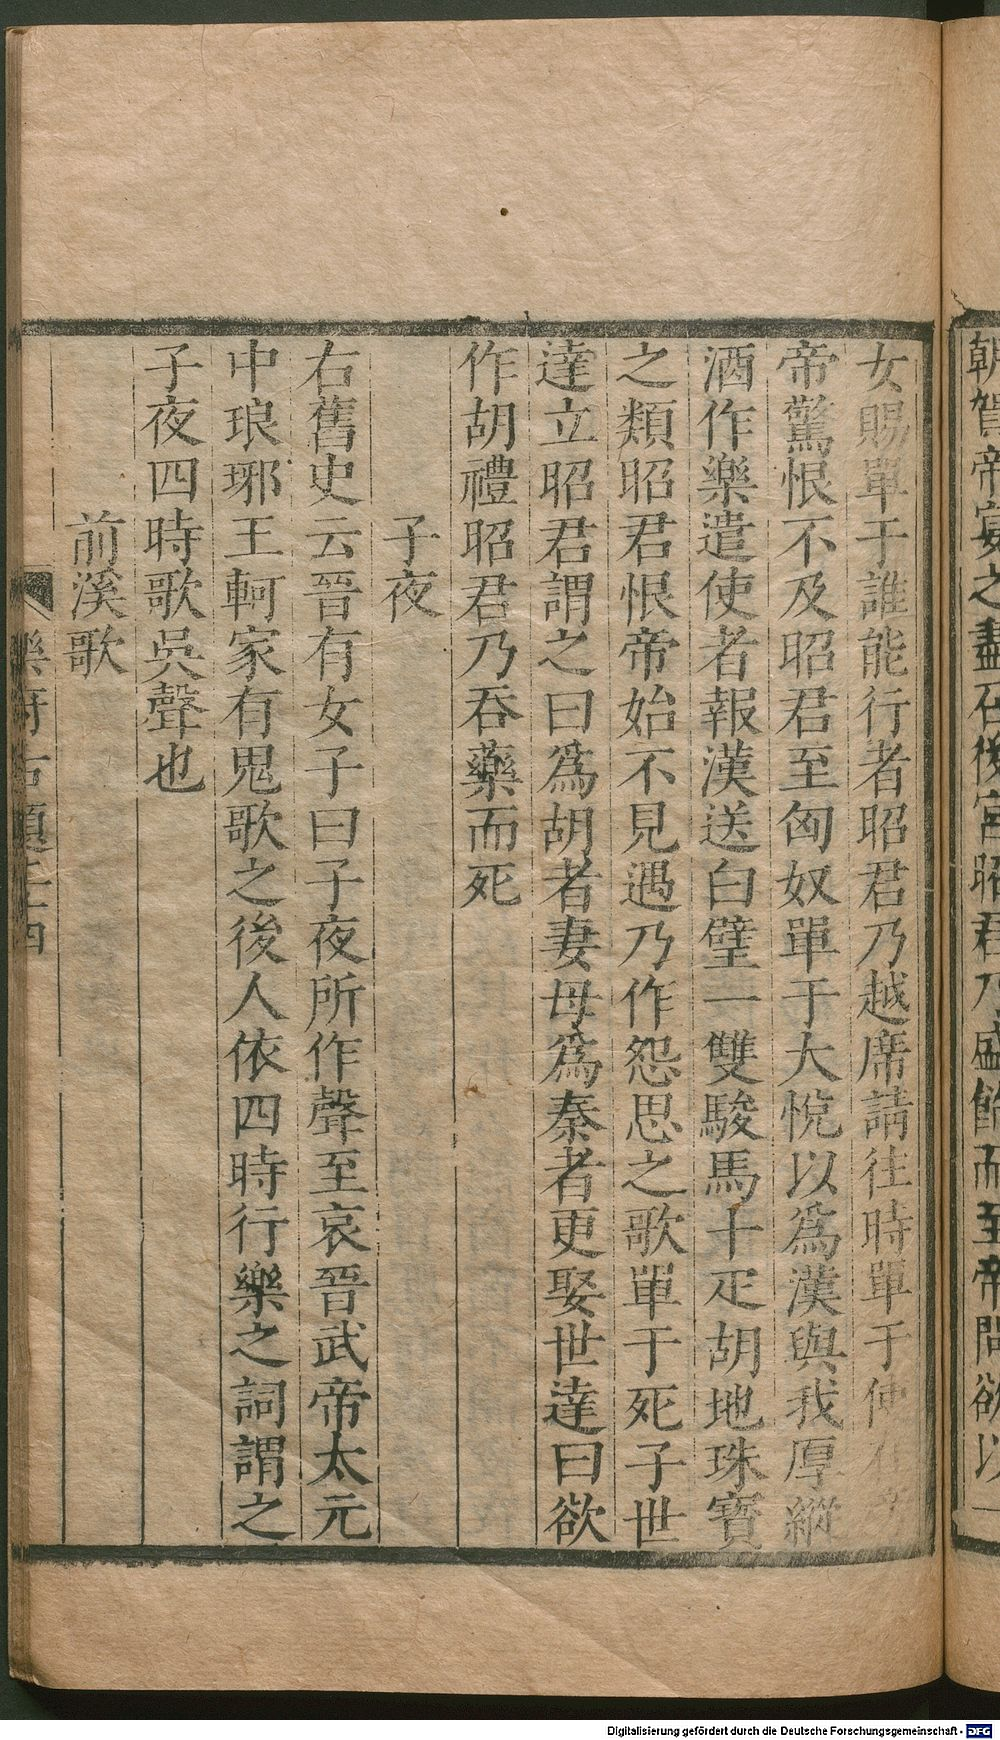 朝賀帝宴之盡召後宮昭君乃盛飾而至帝問欲以一
女賜單于誰能行者昭君乃越席請往時單于使在旁
帝驚恨不及昭君至匈奴單于大悅以爲漢與我厚縱
酒作樂遣使者報漢送白璧一雙駿馬十疋胡地珠寶
之類昭君恨帝始不見遇乃作怨思之歌單于死子世
達立昭君謂之曰爲胡者妻母爲秦者更娶世達曰欲
作胡禮昭君乃吞藥而死
子夜
右舊史云晉有女子曰子夜所作聲至哀晉武帝太元
中琅琊王軻家有鬼歌之後人依四時行樂之詞謂之
子夜四時歌吳聲也
前溪歌
樂府古題 十四
Digitalisierung gefördert durch die Deutsche Forschungsgemeinschaft - DFG